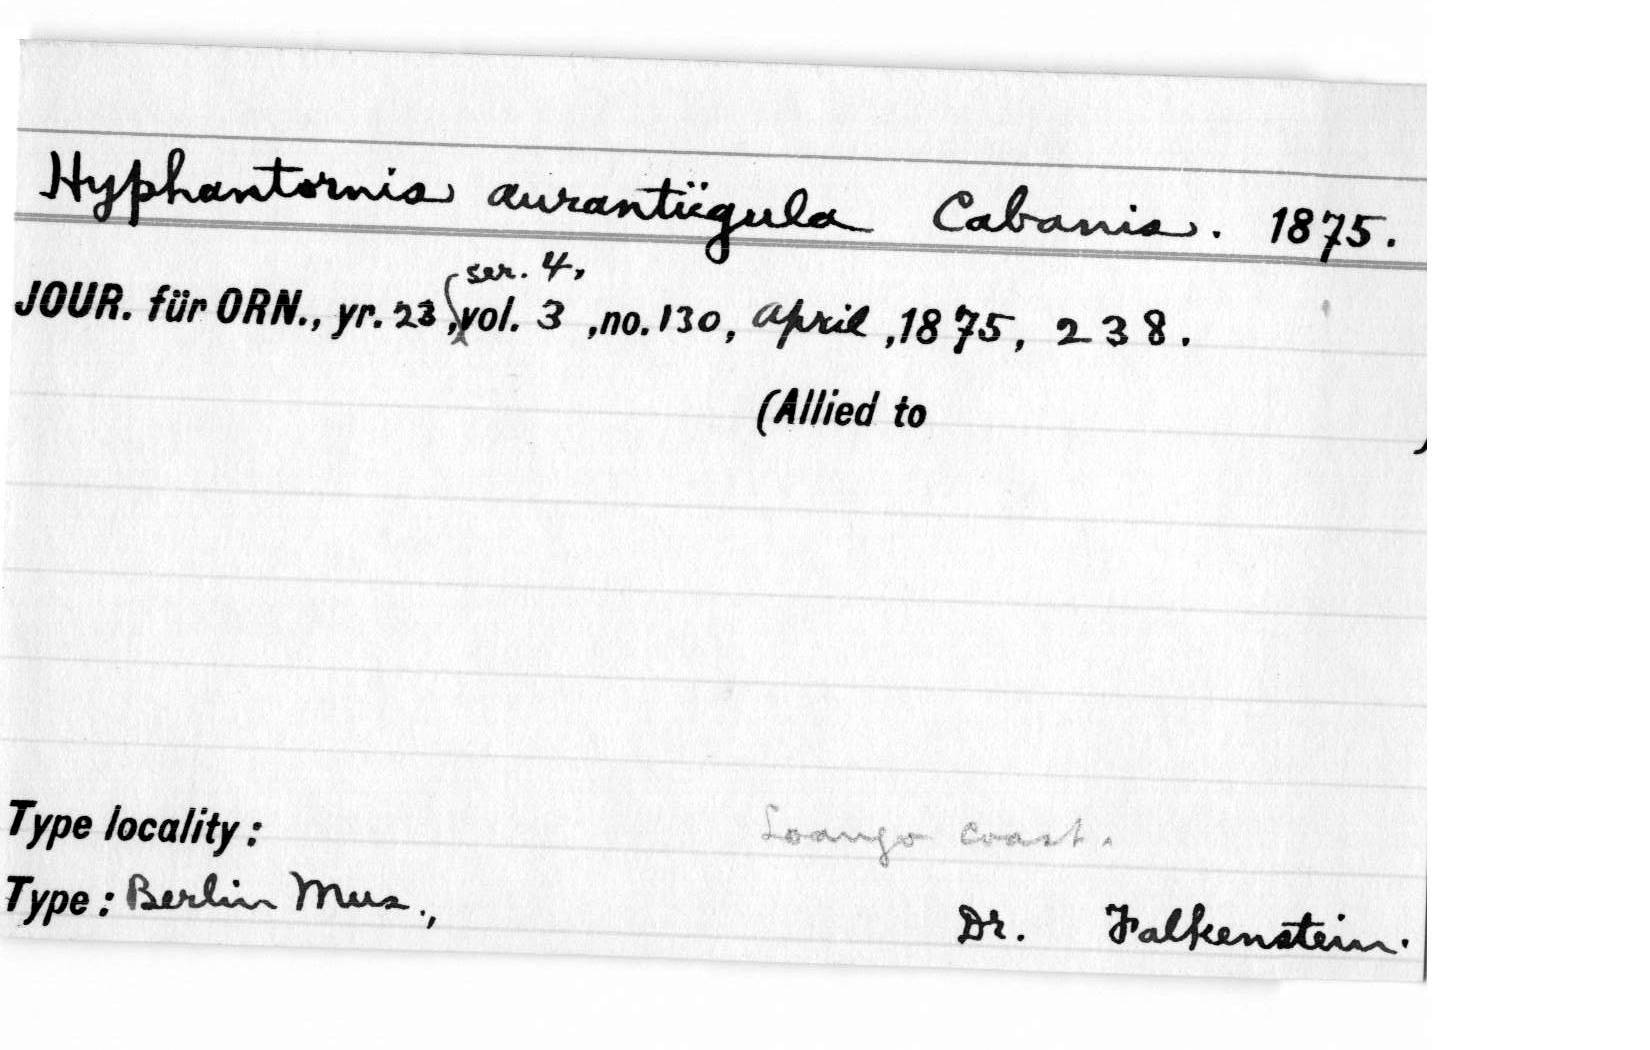 Hyphantornis aurantiigula Cabanis. 1875.
ser. 4,
JOUR. für ORN., yr. 23, vol. 3, no. 130, April, 1875, 238.
(Allied to )
Type locality: Loango coast.
Type: Berlin Mus., Dr. Falkenstein.